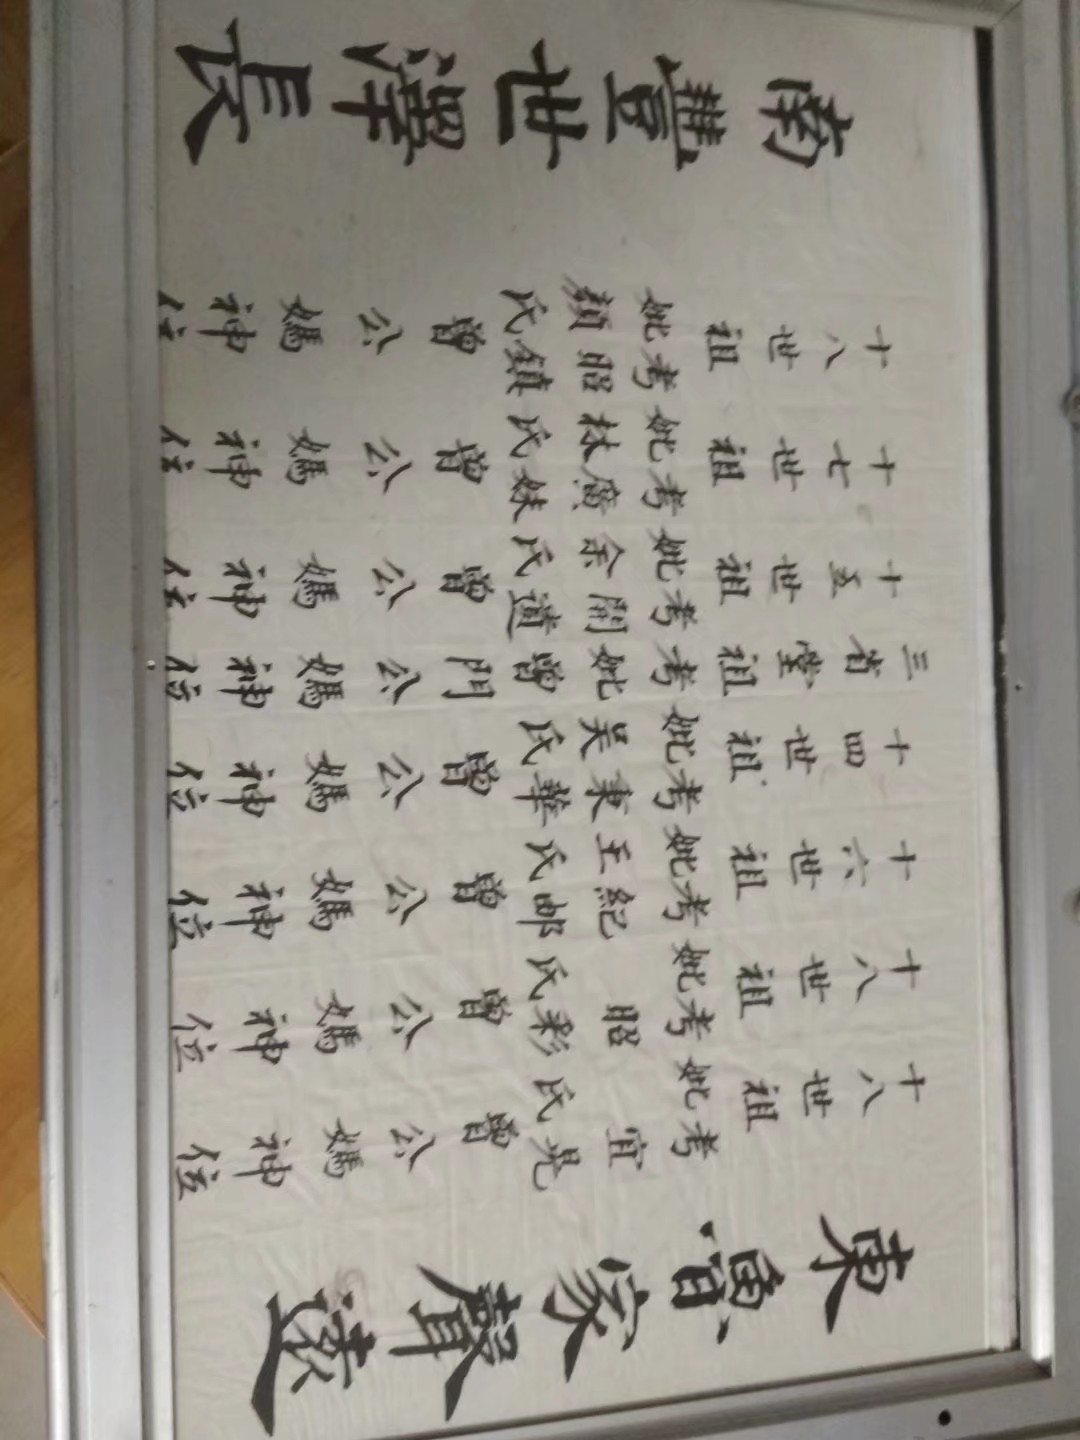 東魯家聲遠
十八世祖考宜晃妣氏曾公媽神位
十八世祖考昭彩妣氏曾公媽神位
十六世祖考紀邮妣王氏曾公媽神位
十四世祖考秉華妣吳氏曾公媽神位
三省堂祖考妣曾門公媽神位
十五世祖考開道妣余氏曾公媽神位
十七世祖考廣妹妣林氏曾公媽神位
十八世祖考昭鎮妣顏氏曾公媽神位
南豐世澤長